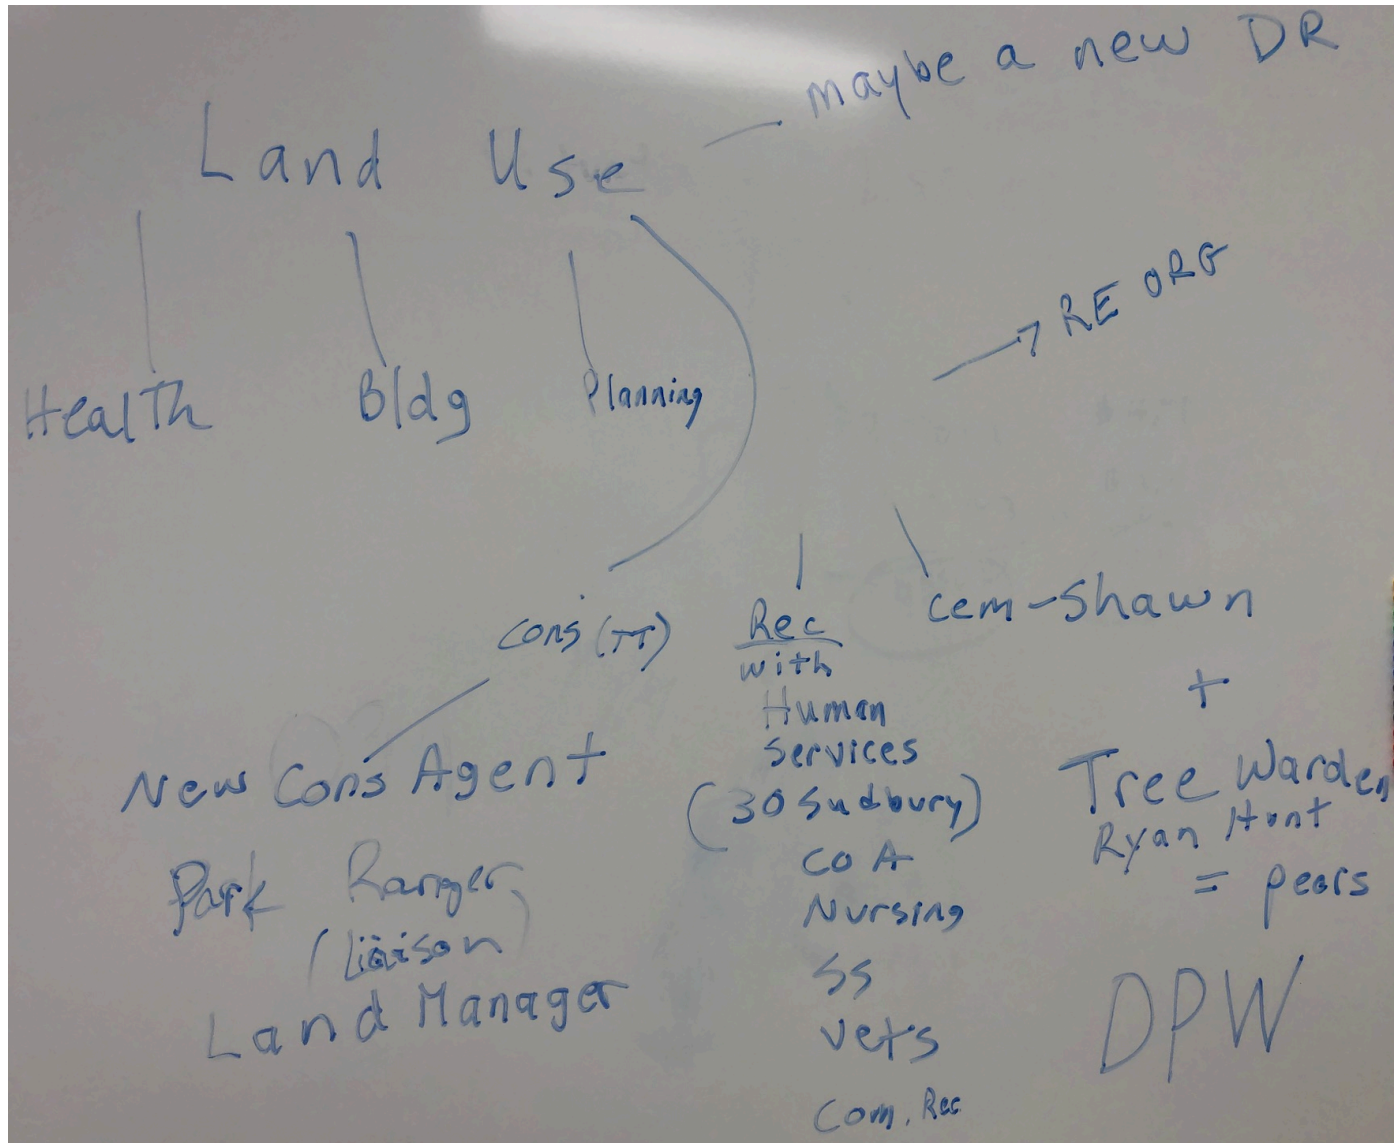 maybe a new DR
Land Use
RE ORG
Health Bldg Planning
Cons (TT)
New Cons Agent
Park Ranger
(liaison)
Land Manager
Rec
with
Human
Services
(30 Sudbury)
COA
Nursing
SS
Vets
Com. Rec
Cem-Shawn
+
Tree Warden
Ryan Hunt
= peers
DPW